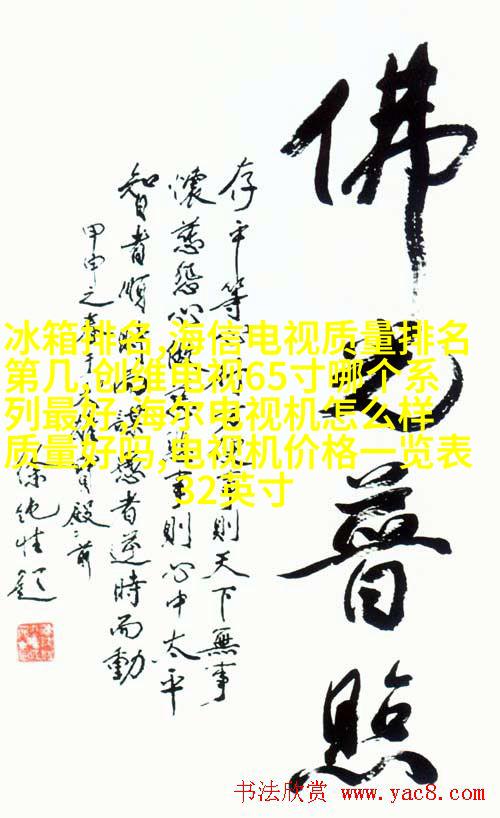 佛光普照
存平等心明無視事則天下無事
懷慈悲心做慈善事則心中太平
智者順時而謀愚者逆時而動
甲申之春于大雄寶殿之前
題
冰箱排名,海信电视质量排名
第几,创维电视65寸哪个系
列最好,海尔电视机怎么样
质量好吗,电视机价格一览表
32英寸
书法欣赏 www.yac8.com